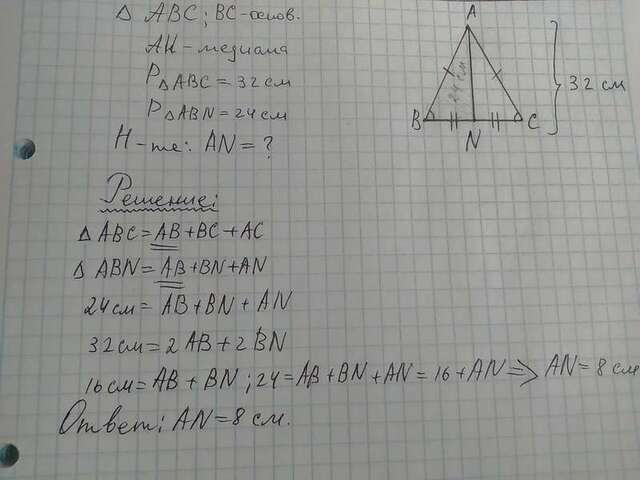 Δ ABC; BC-основ.
AN - медиана
P△ABC = 32 см
P△ABN = 24 см
Н-те: AN = ?
A
24 см
32 см
B
N
C
Решение:
Δ ABC = AB + BC + AC
Δ ABN = AB + BN + AN
24 см = AB + BN + AN
32 см = 2 AB + 2 BN
16 см = AB + BN; 24 = AB + BN + AN = 16 + AN => AN = 8 см
Ответ: AN = 8 см.